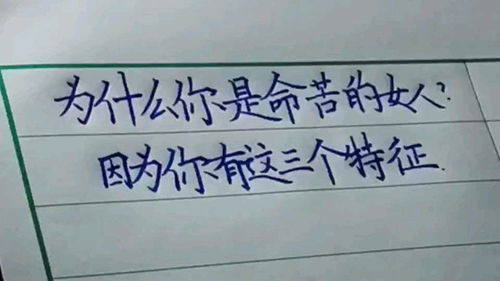 为什么你是命苦的女人?
因为你有这三个特征.